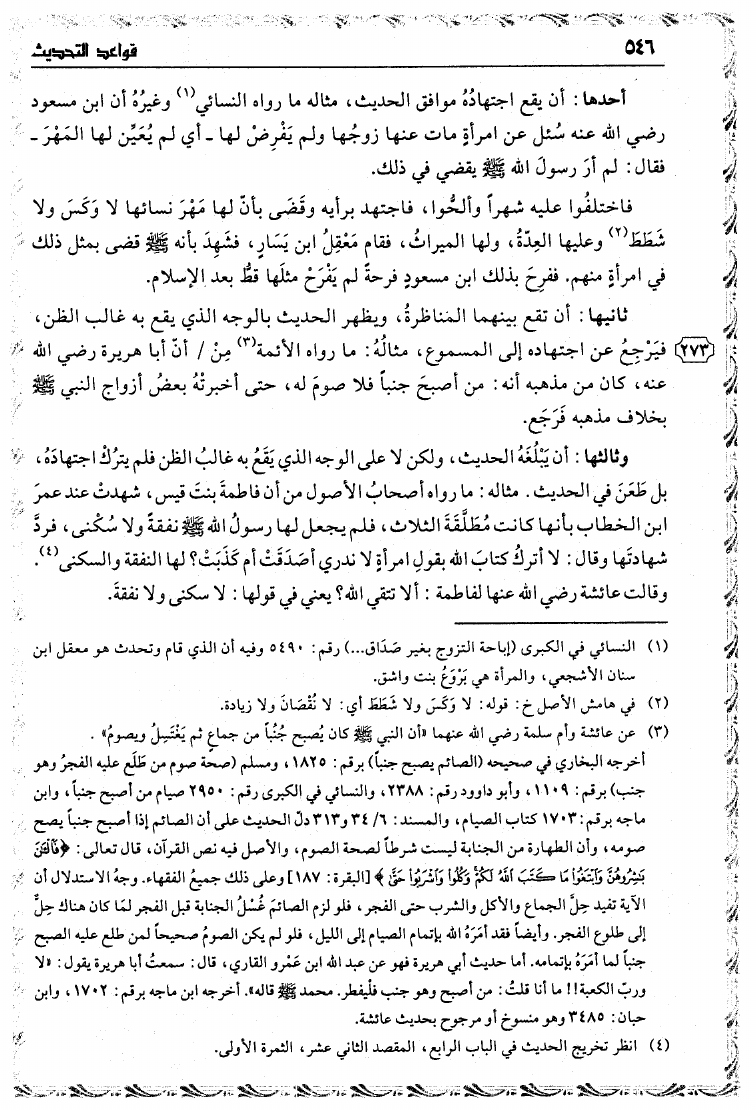 ٥٤٦ قواعد التحديث
أحدها: أن يقع اجتهادُهُ موافق الحديث، مثاله ما رواه النسائي(١) وغيرُهُ أن ابن مسعود
رضي الله عنه سُئل عن امرأةٍ مات عنها زوجُها ولم يَفْرِضْ لها ـ أي لم يُعَيِّن لها المَهْرَ ـ
فقال: لم أرَ رسولَ الله ﷺ يقضي في ذلك.
فاختلفُوا عليه شهراً وألحُّوا، فاجتهد برأيه وقَضَى بأنّ لها مَهْرَ نسائها لا وَكَسَ ولا
شَطَطَ(٢) وعليها العِدّةُ، ولها الميراثُ، فقام مَعْقِلُ ابن يَسَارٍ، فشَهِدَ بأنه ﷺ قضى بمثل ذلك
في امرأةٍ منهم. ففرِحَ بذلك ابن مسعودٍ فرحةً لم يَفْرَحْ مثلَها قطُّ بعد الإسلام.
ثانيها: أن تقع بينهما المناظرةُ، ويظهر الحديث بالوجه الذي يقع به غالب الظن،
٢٧٣ فيَرْجِعُ عن اجتهاده إلى المسموع، مثالُهُ: ما رواه الأئمة(٣) مِنْ / أنّ أبا هريرة رضي الله
عنه، كان من مذهبه أنه: من أصبحَ جنباً فلا صومَ له، حتى أخبرتْهُ بعضُ أزواج النبي ﷺ
بخلاف مذهبه فَرَجَع.
وثالثها: أن يَبْلُغَهُ الحديث، ولكن لا على الوجه الذي يَقَعُ به غالبُ الظن فلم يتركْ اجتهادَهُ،
بل طَعَنَ في الحديث. مثاله: ما رواه أصحابُ الأصول من أن فاطمةَ بنتَ قيس، شهدتْ عند عمرَ
ابن الخطاب بأنها كانت مُطَلَّقَةَ الثلاث، فلم يجعل لها رسولُ الله ﷺ نفقةً ولا سُكْنى، فردَّ
شهادتَها وقال: لا أتركُ كتابَ الله بقولِ امرأةٍ لا ندري أصَدَقَتْ أم كَذَبَتْ؟ لها النفقة والسكنى(٤).
وقالت عائشة رضي الله عنها لفاطمة: ألا تتقي الله؟ يعني في قولها: لا سكنى ولا نفقةَ.
(١) النسائي في الكبرى (إباحة التزوج بغير صَدَاق...) رقم: ٥٤٩٠ وفيه أن الذي قام وتحدث هو معقل ابن
سنان الأشجعي، والمرأة هي بَرْوَعُ بنت واشق.
(٢) في هامش الأصل خ: قوله: لا وَكَسَ ولا شَطَطَ أي: لا نُقْصَانَ ولا زيادة.
(٣) عن عائشة وأم سلمة رضي الله عنهما «أن النبي ﷺ كان يُصبح جُنُباً من جماعٍ ثم يَغْتَسِلُ ويصومُ».
أخرجه البخاري في صحيحه (الصائم يصبح جنباً) برقم: ١٨٢٥، ومسلم (صحة صوم من طَلَع عليه الفجرُ وهو
جنب) برقم: ١١٠٩، وأبو داوود رقم: ٢٣٨٨، والنسائي في الكبرى رقم: ٢٩٥٠ صيام من أصبح جنباً، وابن
ماجه برقم: ١٧٠٣ كتاب الصيام، والمسند: ٣٤/٦ و٣١٣ دلّ الحديث على أن الصائم إذا أصبح جنباً يصح
صومه، وأن الطهارة من الجنابة ليست شرطاً لصحة الصوم، والأصل فيه نص القرآن، قال تعالى: ﴿فَالْـَٔنَ
بَٰشِرُوهُنَّ وَابْتَغُوا مَا كَتَبَ اللَّهُ لَكُمْ وَكُلُوا وَاشْرَبُوا حَتَّىٰ﴾ [البقرة: ١٨٧] وعلى ذلك جميعُ الفقهاء. وجهُ الاستدلال أن
الآية تفيد حِلَّ الجماع والأكل والشرب حتى الفجر، فلو لزم الصائمَ غُسْلُ الجنابة قبل الفجر لمَا كان هناك حِلٌّ
إلى طلوع الفجر. وأيضاً فقد أمَرَهُ الله بإتمام الصيام إلى الليل، فلو لم يكن الصومُ صحيحاً لمن طلع عليه الصبح
جنباً لما أمَرَهُ بإتمامه. أما حديث أبي هريرة فهو عن عبد الله ابن عَمْرو القاري، قال: سمعتُ أبا هريرة يقول: «لا
وربّ الكعبة!! ما أنا قلتُ: من أصبح وهو جنب فلْيفطر. محمد ﷺ قاله». أخرجه ابن ماجه برقم: ١٧٠٢، وابن
حبان: ٣٤٨٥ وهو منسوخ أو مرجوح بحديث عائشة.
(٤) انظر تخريج الحديث في الباب الرابع، المقصد الثاني عشر، الثمرة الأولى.